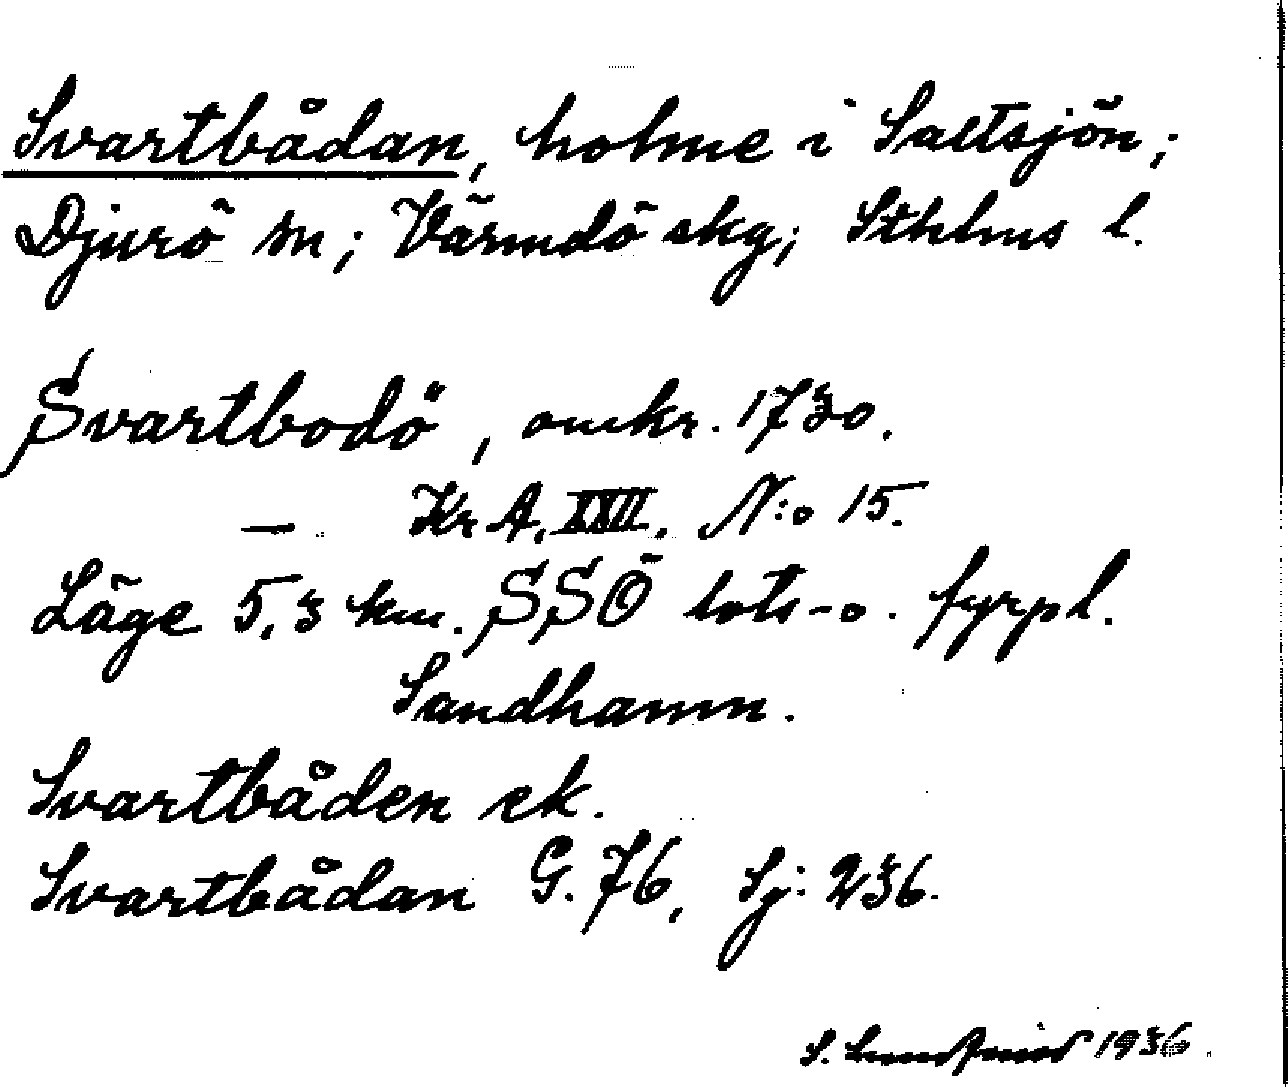 Svartbådan, holme i Saltsjön;
Djurö sn; Värmdö skg; Sthlms l.
Svartbodö, omkr. 1730.
— . Kr A. XXII. N:o 15.
Läge 5,3 km. SSÖ lots- o. fyrpl.
Sandhamn.
Svartbåden ek.
Svartbådan G. 76, Sj: 236.
S. 1936.